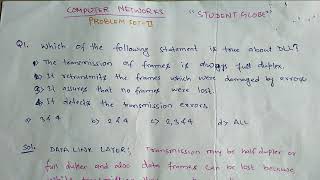 COMPUTER NETWORKS "STUDENT GLOBE"
PROBLEM SET-II
Q1. Which of the following statement is true about DLL?
1) The transmission of frames is always full duplex.
2) It retransmits the frames which were damaged by errors
3) It assures that no frames were lost.
4) It detects the transmission errors.
a) 3 & 4 b) 2 & 4 c) 2, 3 & 4 d) ALL
Sol. DATA LINK LAYER: Transmission may be half duplex or
full duplex and also data frames can be lost because